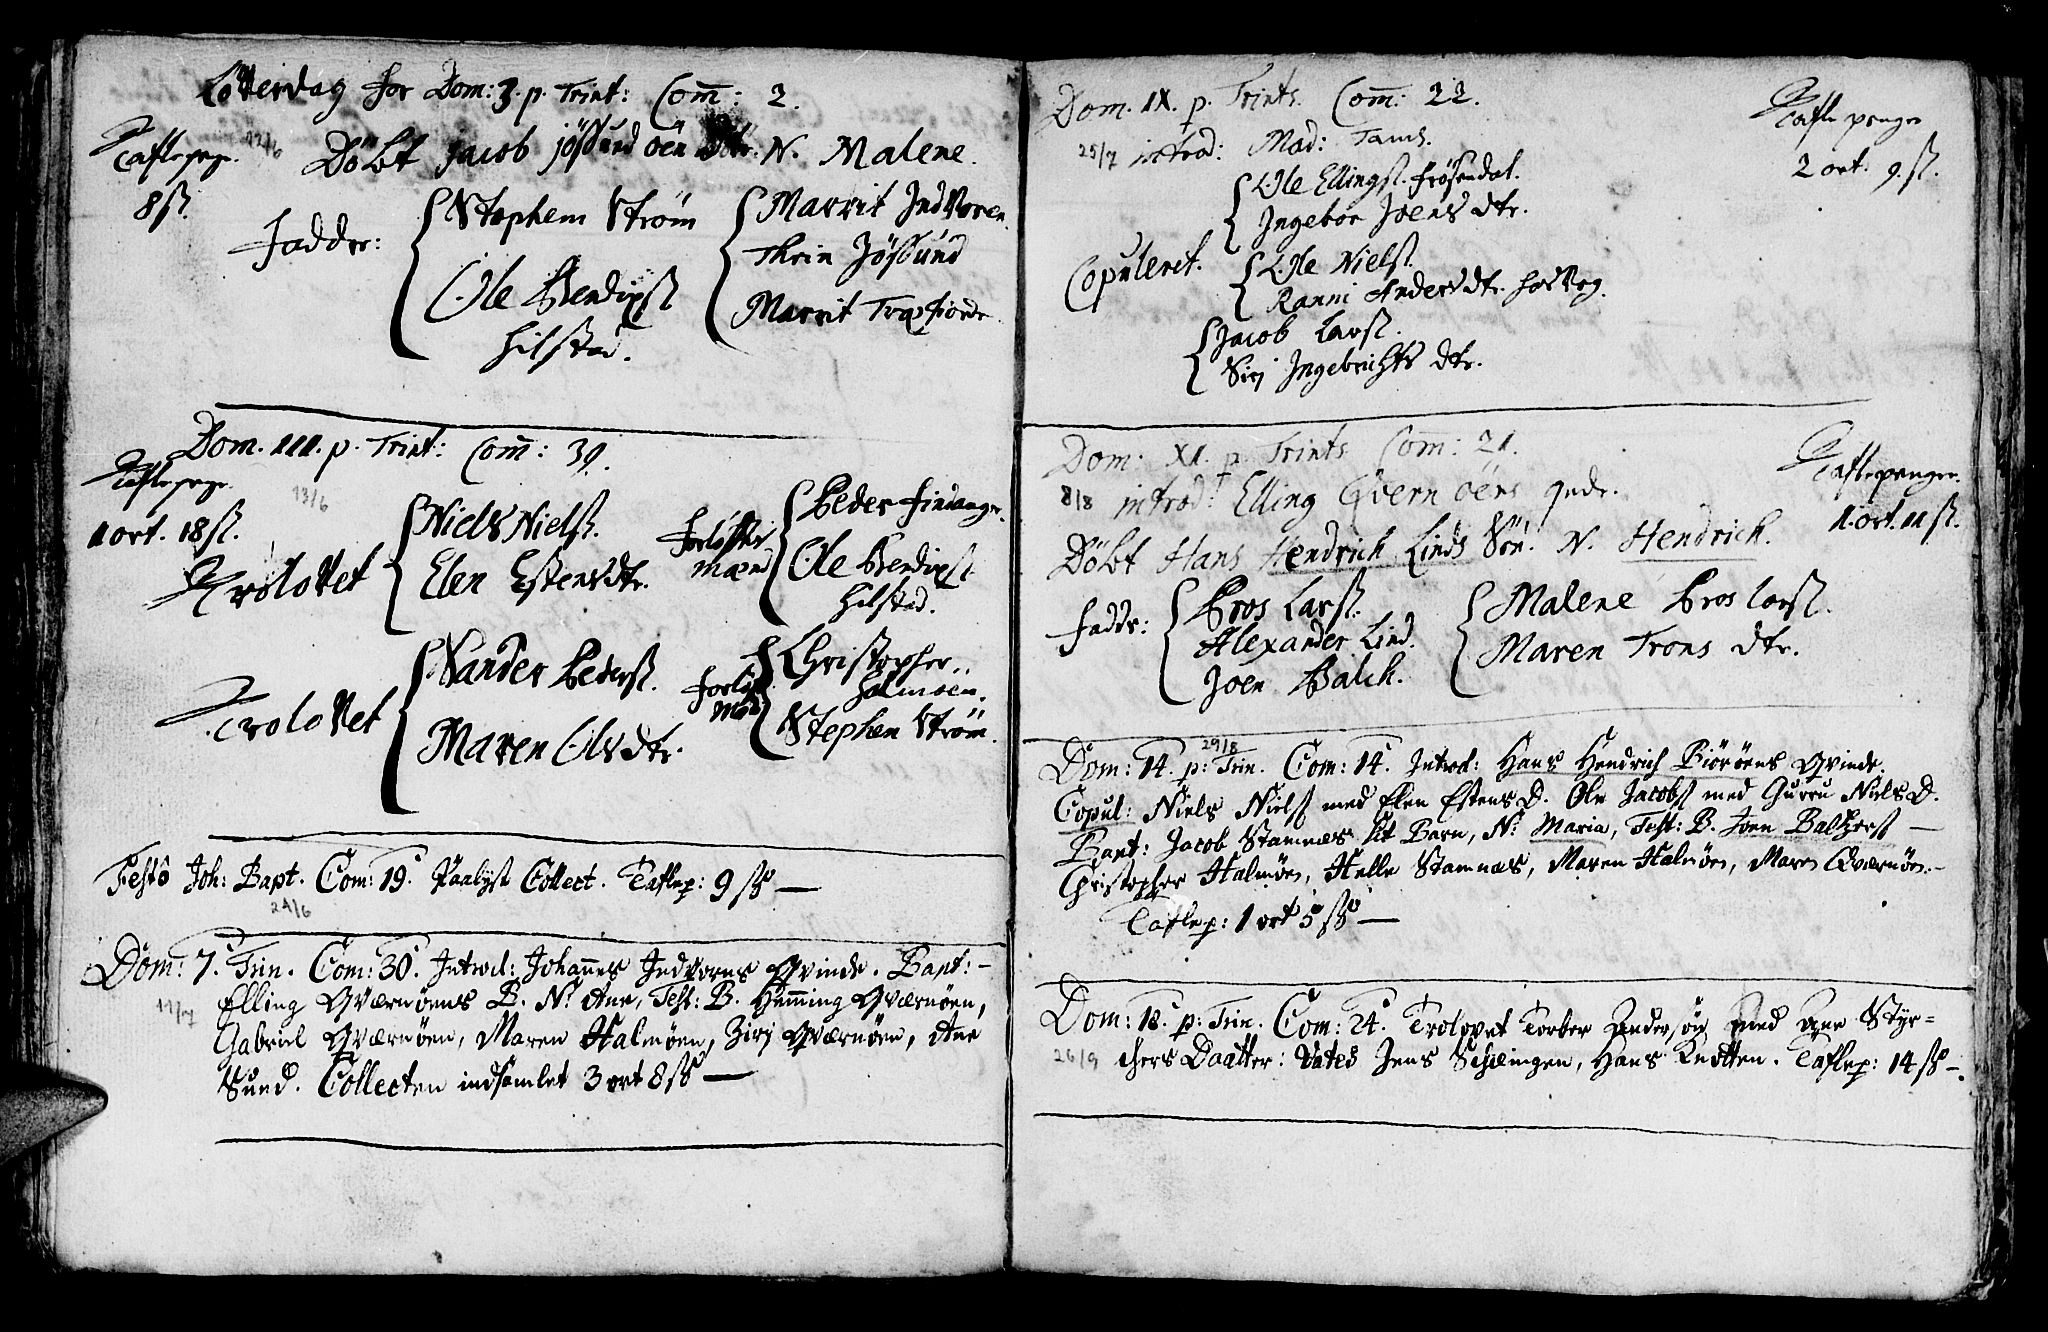 Løverdag for Dom: 3. p. Trint: Com̅: 2.
Taflepge. 12/6 Döbt Jacob Jössund öen Dtr. N. Malene.
8 ß.
Fadder: Stephem Strøm
Ole Bendixß
Hilstad.
Marrit Indvoren
Thrin Jössund
Marrit Traxfiorde
Dom. III. p. Trint: Com̅: 39.
Taflepge. 13/6
1 ort. 18 ß.
Trolovet Niels Nielß.
Elen Estensdtr.
Forlofter
mænd
Peder Finvanger.
Ole Bendixß
Hilstad.
Trolovet Sander Pederß.
Maren Olsdtr.
Forlof
mæn
Christopher
Halmöen.
Stephen Strøm.
Festo Joh: Bapt. Com: 19. Paalyst Collect. Taflep: 9 ß —
24/6
Dom: 7. Trin. Com: 30. Introd: Johan̅es Indvorns Qvinde. Bapt: –
11/7 Elling Qværnöens B. N: Ane, Test: B. Hem̅ing Qværnöen,
Gabriel Qværnöen, Maren Halmöen, Zirj Qværnöen, Ane
Sund. Collecten indsamlet 3 ort 8 ß —
Dom. IX. p. Trints. Com̅: 22.
Tafle penge
2 ort. 9. ß.
25/7 introd: Mad: Tams.
Ole Ellingß. Frösendal.
Ingebor Joens dtr.
Copuleret. Ole Nielß.
Ranni Anders dtr.
Jacob Larß.
Sirj Ingebrichts dtr.
Dom. XI. p. Trints Com̅: 21.
Taflepenger.
1. ort. 11 ß.
8/8 introd: Elling Qvern öens qvde.
Döbt Hans Hendrich Linds Sön. N. Hendrich.
Faddr: Pros Larß.
Alexander Lind.
Joen Balch.
Malene Pros Larß.
Maren Trons dtr.
29/8
Dom: 14. p: Trin. Com: 14. Introd: Hans Hendrich Biöröens Qvinde.
Copul: Niels Nielß med Elen Estens D. Ole Jacobß med Gurru Niels D.
Bapt: Jacob Stamnæs lit Barn, N: Maria, Test: B. Joen Balchers —
Christopher Halmöen, Helle Stamnæs, Maren Halmöen, Maren Qværnöen. –
Taflep: 1 ort 5 ß —
Dom: 18. p: Trin. Com: 24. Trolovet Torber Andersön med Ane Styr=
26/9 chers Daatter: Vates Jens Schieingen, Hans Knotten. Taflep: 14 ß –.